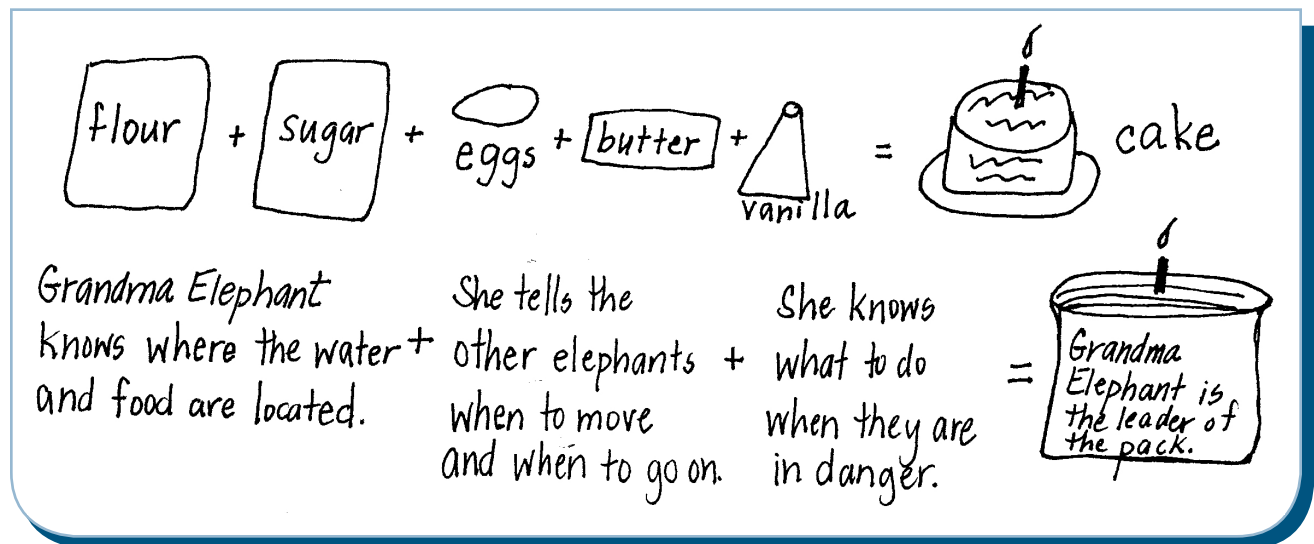 flour + sugar + eggs + butter + vanilla = cake
Grandma Elephant
knows where the water +
and food are located.
She tells the
other elephants +
when to move
and when to go on.
She knows
what to do
when they are
in danger.
=
Grandma
Elephant is
the leader of
the pack.